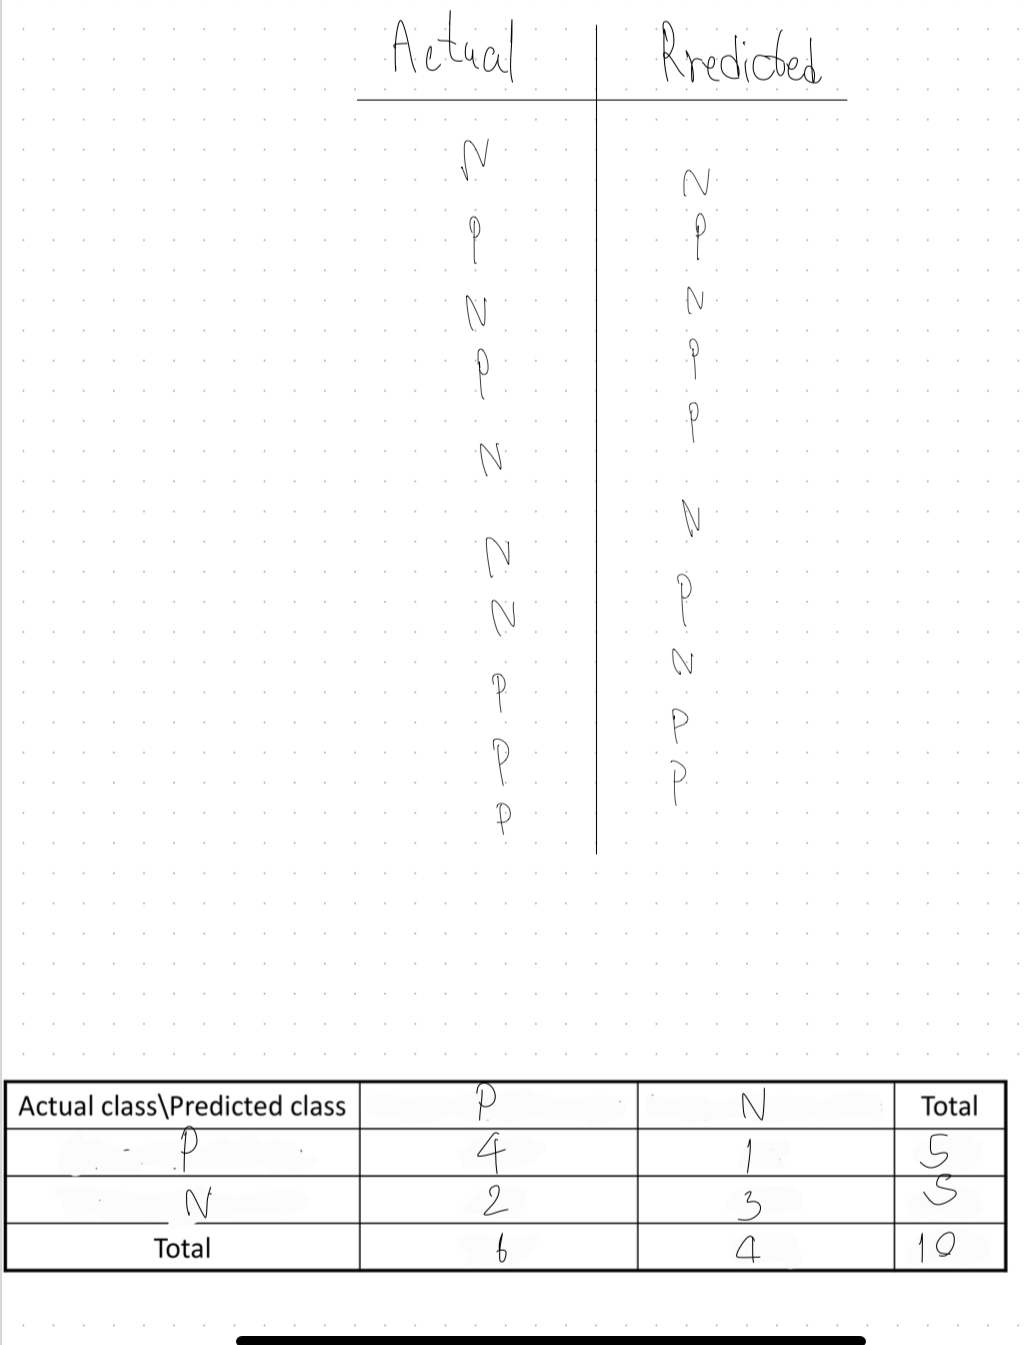 Actual Rredicted
N N
P P
N N
P P
N P
N N
N P
P N
P P
P P
Actual class\Predicted class P N Total
P 4 1 5
N 2 3 5
Total 6 4 10